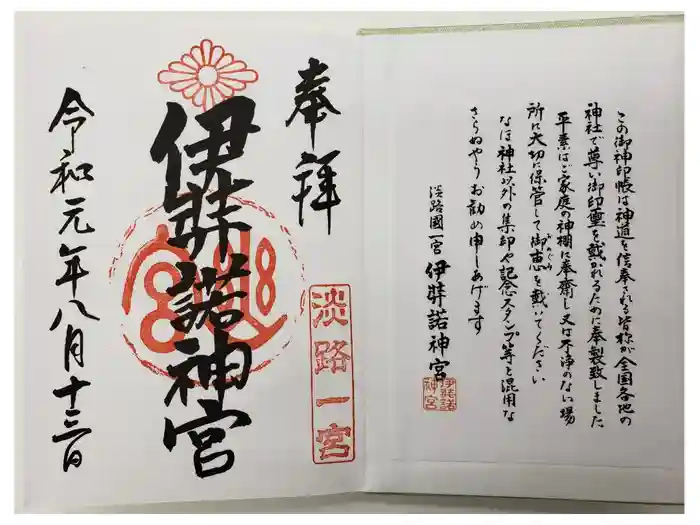 この御神印帳は神道を信奉される皆称が全国各地の
神社で尊い御印璽を戴かれるために奉製致しました
平素はご家庭の神棚に奉齋し又は不浄のない場
所に大切に保管して御恵を戴いてください
めぐみ
なほ神社以外の集印や記念スタンプ等と混用な
さらぬやうお勧め申しあげます
淡路國一宮 伊弉諾神宮
伊弉諾
神宮
奉拝
淡路一宮
伊弉諾神宮
令和元年八月十三日